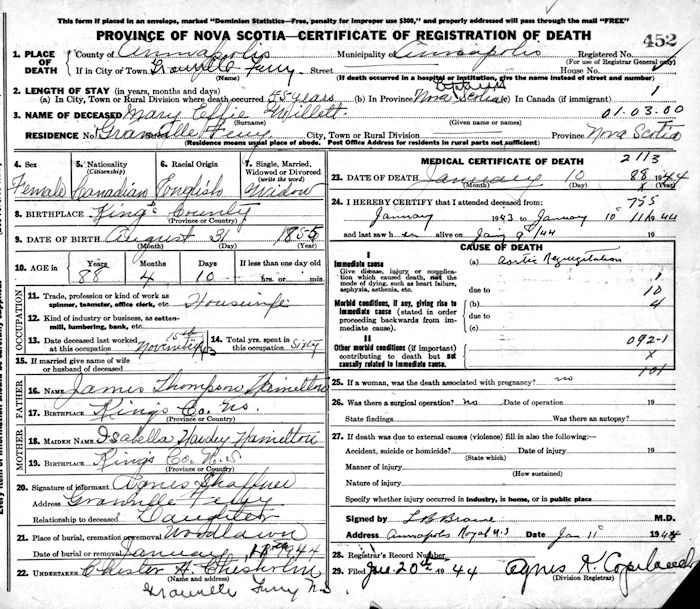 This form if placed in an envelope, marked "Dominion Statistics—Free, penalty for improper use $300," and properly addressed will pass through the mail "FREE"
PROVINCE OF NOVA SCOTIA—CERTIFICATE OF REGISTRATION OF DEATH
452
1. PLACE OF DEATH
County of Annapolis Municipality of Annapolis Registered No.
(For use of Registrar General only)
If in City or Town Granville Ferry Street House No.
(Name) (If death occurred in a hospital or institution, give the name instead of street and number)
2. LENGTH OF STAY (in years, months and days)
(a) In City, Town or Rural Division where death occurred 55 years (b) In Province Nova Scotia (c) In Canada (if immigrant) 1
3. NAME OF DECEASED Mary Effie Millett 01.03.00
(Surname) (Given name or names)
RESIDENCE No. Granville Ferry City, Town or Rural Division Province Nova Scotia
(Residence means usual place of abode. Post Office Address for residents in rural parts not sufficient)
4. Sex Female
5. Nationality (Citizenship) Canadian
6. Racial Origin English
7. Single, Married, Widowed or Divorced (write the word) Widow
8. BIRTHPLACE King's County
(Province or Country)
9. DATE OF BIRTH August 31 1855
(Month) (Day) (Year)
10. AGE in Years 88 Months 4 Days 10 If less than one day old hrs. or min.
OCCUPATION
11. Trade, profession or kind of work as spinner, teamster, office clerk, etc. Housewife
12. Kind of industry or business, as cotton-mill, lumbering, bank, etc.
13. Date deceased last worked at this occupation 15th November 43
14. Total yrs. spent in this occupation Sixty
15. If married give name of wife or husband of deceased
FATHER
16. NAME James Thompson Hamilton
17. BIRTHPLACE Kings Co. N.S.
(Province or Country)
MOTHER
18. MAIDEN NAME Isabella Hamilton
19. BIRTHPLACE Kings Co. N.S.
(Province or Country)
20. Signature of informant Agnes Shaffner
Address Granville Ferry
Relationship to deceased Daughter
21. Place of burial, cremation or removal Woodlawn
Date of burial or removal January 1944
22. UNDERTAKER Chester A. Chesholm
(Name and address)
Granville Ferry N.S.
MEDICAL CERTIFICATE OF DEATH 2113
23. DATE OF DEATH January 10 88 1944
(Month) (Day) X (Year)
24. I HEREBY CERTIFY that I attended deceased from: 755
January 1943 to January 10 11 1944
and last saw her alive on Jany 9th/44 19
CAUSE OF DEATH
I
Immediate cause
Give disease, injury or complication which caused death, not the mode of dying, such as heart failure, asphyxia, asthenia, etc.
(a) Aortic Regurgitation
due to 1
10
Morbid conditions, if any, giving rise to immediate cause (stated in order proceeding backwards from immediate cause).
(b) 4
due to
(c)
II
Other morbid conditions (if important) contributing to death but not causally related to immediate cause.
092-1
X
101
25. If a woman, was the death associated with pregnancy? no
26. Was there a surgical operation? no Date of operation 19
State findings Was there an autopsy?
27. If death was due to external causes (violence) fill in also the following:—
Accident, suicide or homicide? Date of injury 19
(State which)
Manner of injury
(How sustained)
Nature of injury
Specify whether injury occurred in industry, is home, or in public place
Signed by L B Braine M.D.
Address Annapolis Royal N.S Date Jan 11 1944
28. Registrar's Record Number
29. Filed Jan. 20th 1944 Agnes K. Copeland
(Division Registrar)